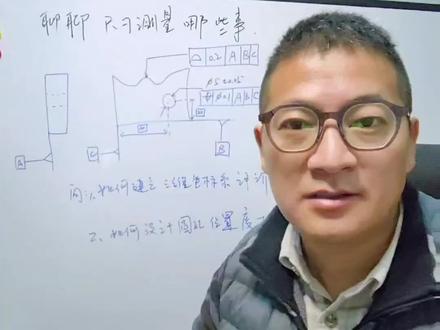 聊聊 尺寸测量 哪些事.
⌓ 0.2 A B C
ø5±0.05
⌖ ø0.1 A B C
A
C
B
问: 1、如何建立三维坐标系评价
2、如何设计圆的位置度